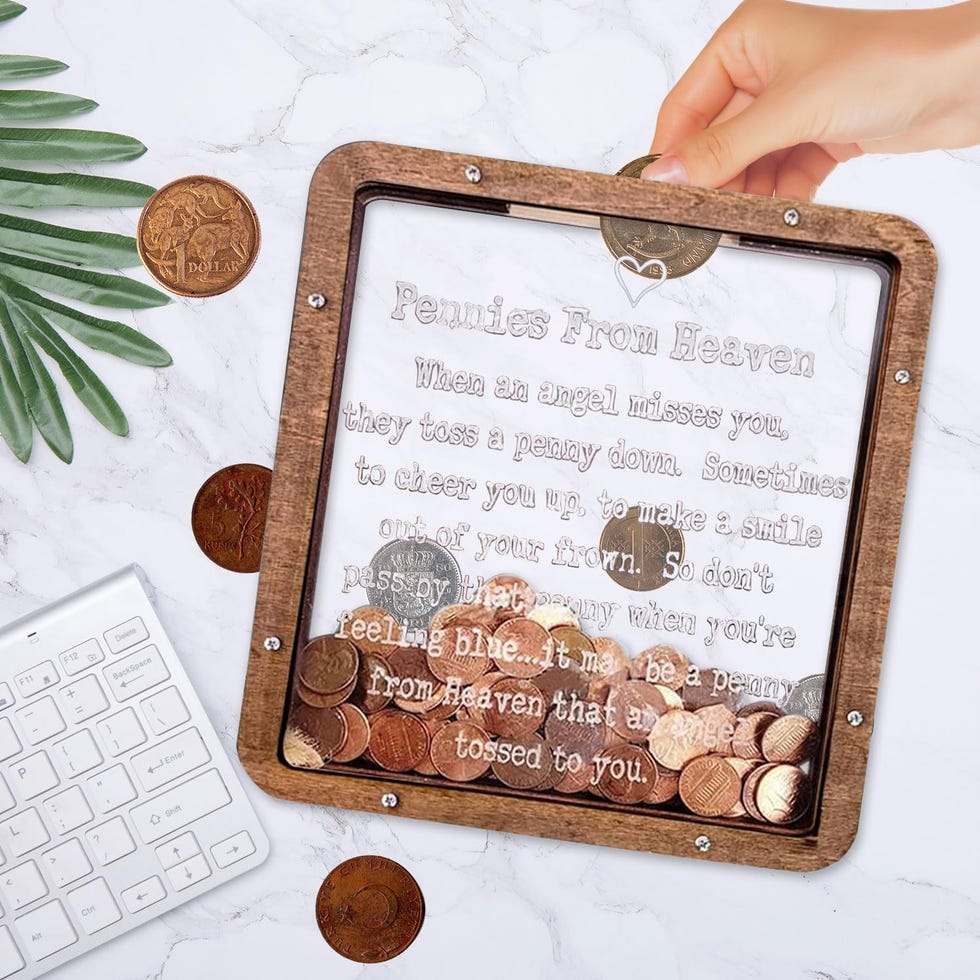 DOLLAR
Pennies From Heaven
When an angel misses you,
they toss a penny down. Sometimes
to cheer you up, to make a smile
out of your frown. So don't
pass by that penny when you're
feeling blue...it may be a penny
from Heaven that an angel
tossed to you.
5
KURUS
Delete
F12
F11
BackSpace
Enter
P
Shift
L
Ctrl
Alt